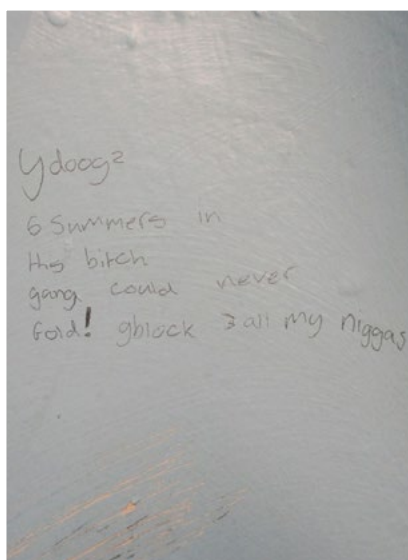 Ydoog²
6 Summers in
ths bitch
gang could never
Fold! gblock 3 all my niggas